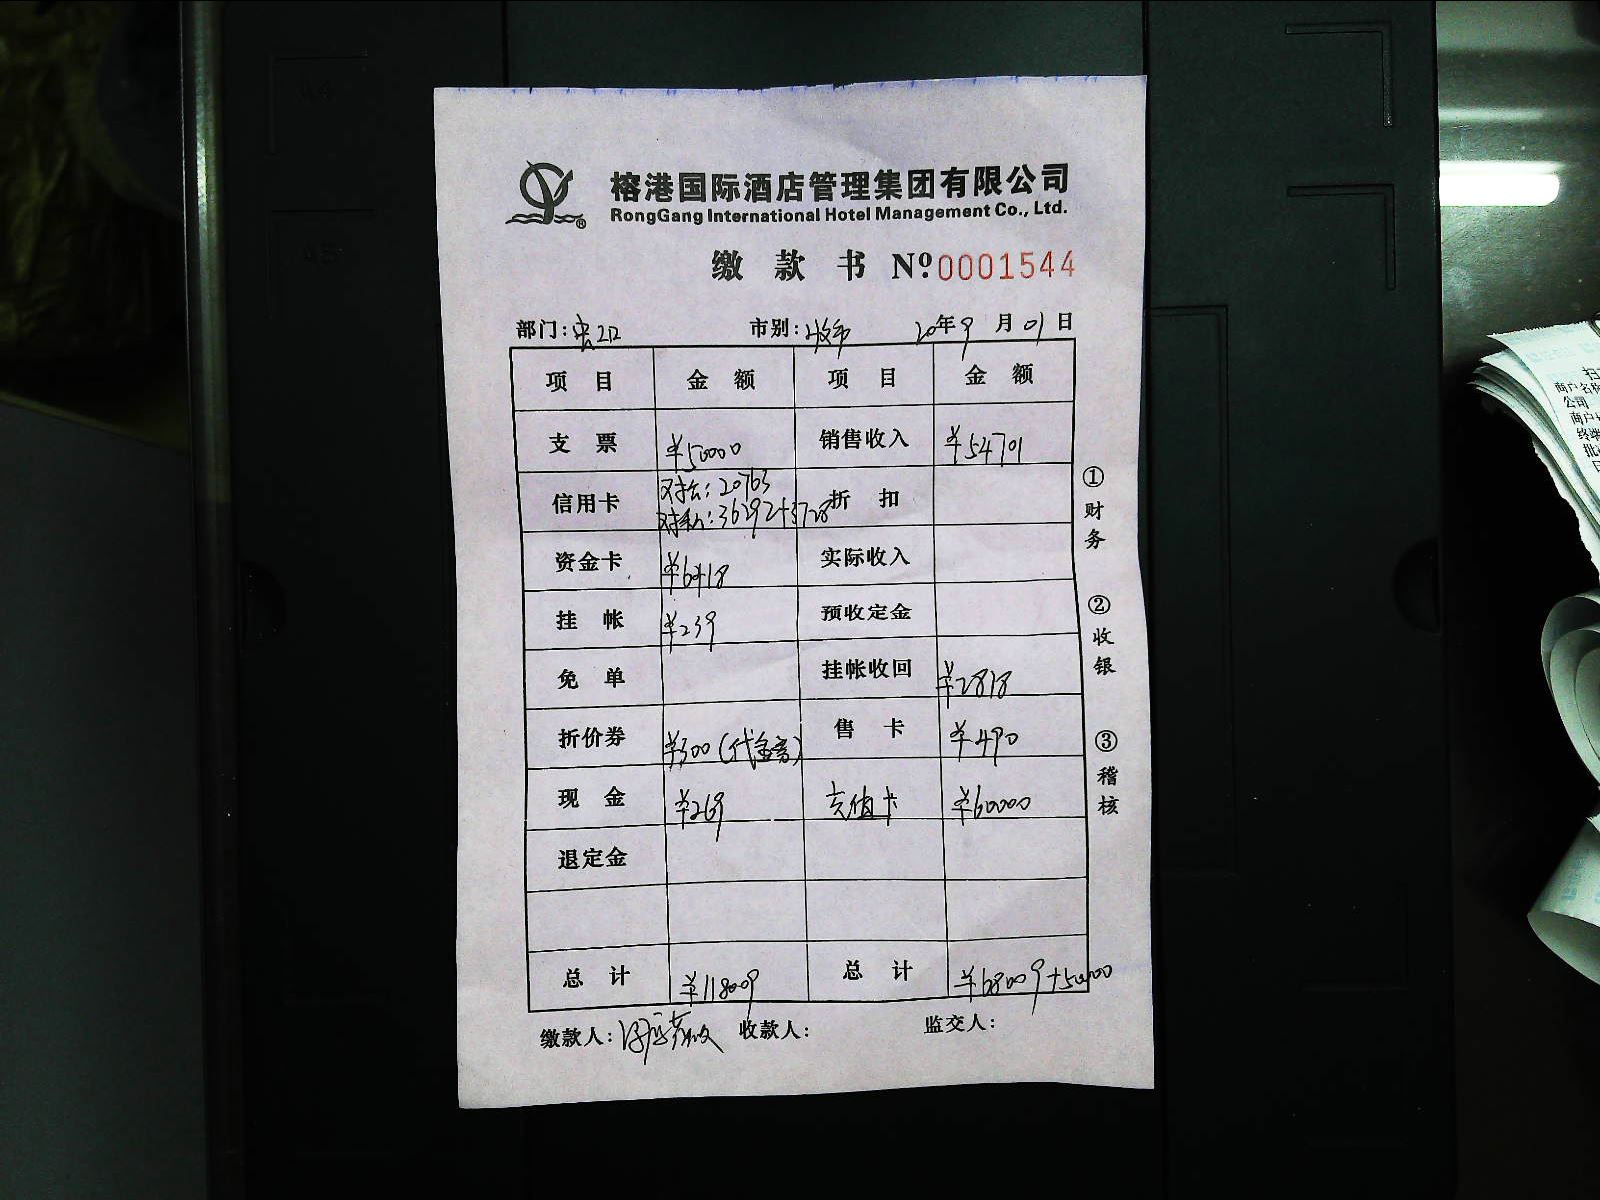 榕港国际酒店管理集团有限公司
RongGang International Hotel Management Co., Ltd.
®
缴 款 书 Nº 0001544
部门: 市别: 20年9月01日
项 目 金 额 项 目 金 额
支 票 ¥50000 销售收入 ¥54701
信用卡 对公: 20763 折 扣
对私: 36292+3728
资金卡 ¥6418 实际收入
挂 帐 ¥239 预收定金
免 单 挂帐收回 ¥2818
折价券 ¥300(代金券) 售 卡 ¥490
现 金 ¥269 充值卡 ¥60000
退定金
总 计 ¥118009 总 计 ¥68009+50000
缴款人: 收款人: 监交人:
①财务
②收银
③稽核
A4
A5
商户名称
公司